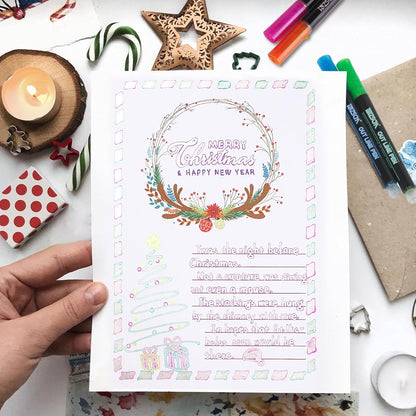 MERRY
Christmas
& HAPPY NEW YEAR
'Twas the night before
Christmas.
Not a creature was stirring
not even a mouse.
The stockings were hung
by the chimney with care.
In hopes that St. Nic-
holas soon would be
there.
OUT LINE PEN
OUT LINE PEN